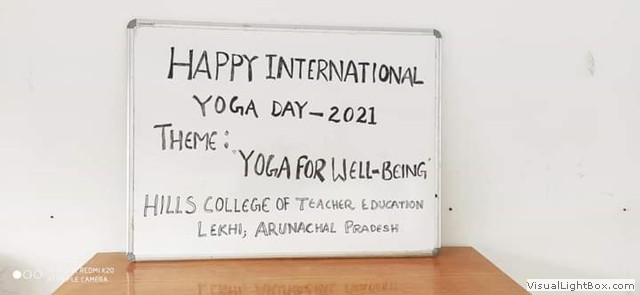 HAPPY INTERNATIONAL
YOGA DAY - 2021
THEME:
"YOGA FOR WELL-BEING"
HILLS COLLEGE OF TEACHER EDUCATION
LEKHI, ARUNACHAL PRADESH
REDMI K20
LE CAMERA
VisualLightBox.com